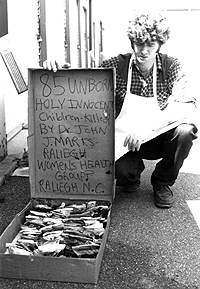 85 UNBORN
HOLY INNOCENT
Children-Killed
BY Dr. JOHN
J. MARKS-
RALIEGH
WOMEN'S HEALTH
GROUP?
RALIEGH N.C.